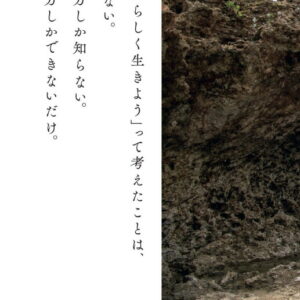 らしく生きよう」って考えたことは、
ない。
方しか知らない。
方しかできないだけ。